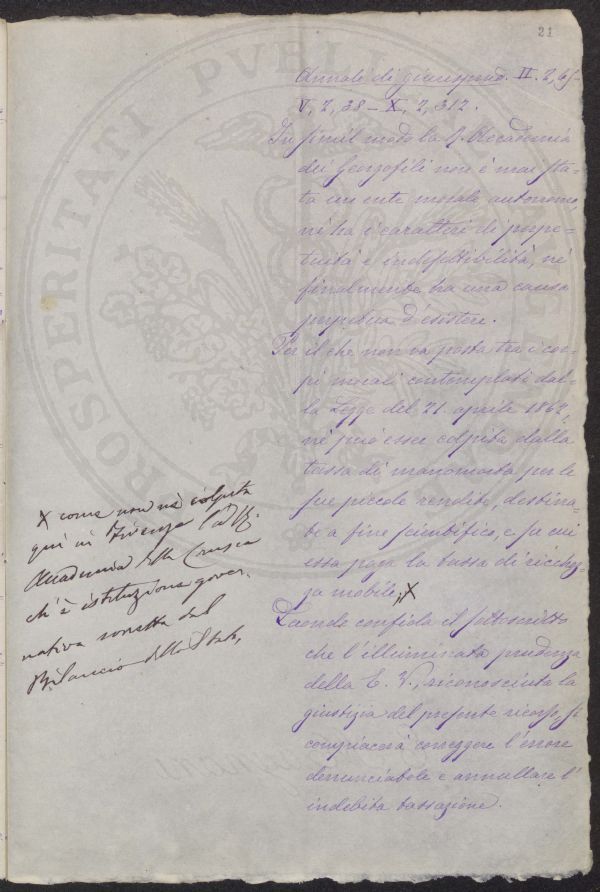 21
Annali di giurisprud. II. 2,
V, 2, 38 – X, 2, 312.
In simil modo la R. Accademia
dei Georgofili non è mai sta=
ta un ente morale autonomo,
nè ha i caratteri di perpe=
tuità e indefettibilità, nè
finalmente ha una causa
perpetua d'esistere.
Per il che non va posta tra i cor=
pi morali contemplati dal=
la Legge del 21 aprile 1862,
nè può esser colpita dalla
tassa di manomorta per le
sue piccole rendite, destina=
te a fine scientifico, e su cui
essa paga la tassa di ricchez=
za mobile; X
X come non ne è colpita
qui in Firenze la R.
Accademia della Crusca
ch'è istituzione gover-
nativa sorretta dal
Bilancio dello Stato,
Laonde confida il sottoscritto
che l'illuminata prudenza
della E. V., riconosciuta la
giustizia del presente ricorso, si
compiacerà correggere l'errore
denunciabole e annullare l'
indebita tassazione.
PROSPERITATI PVBLI